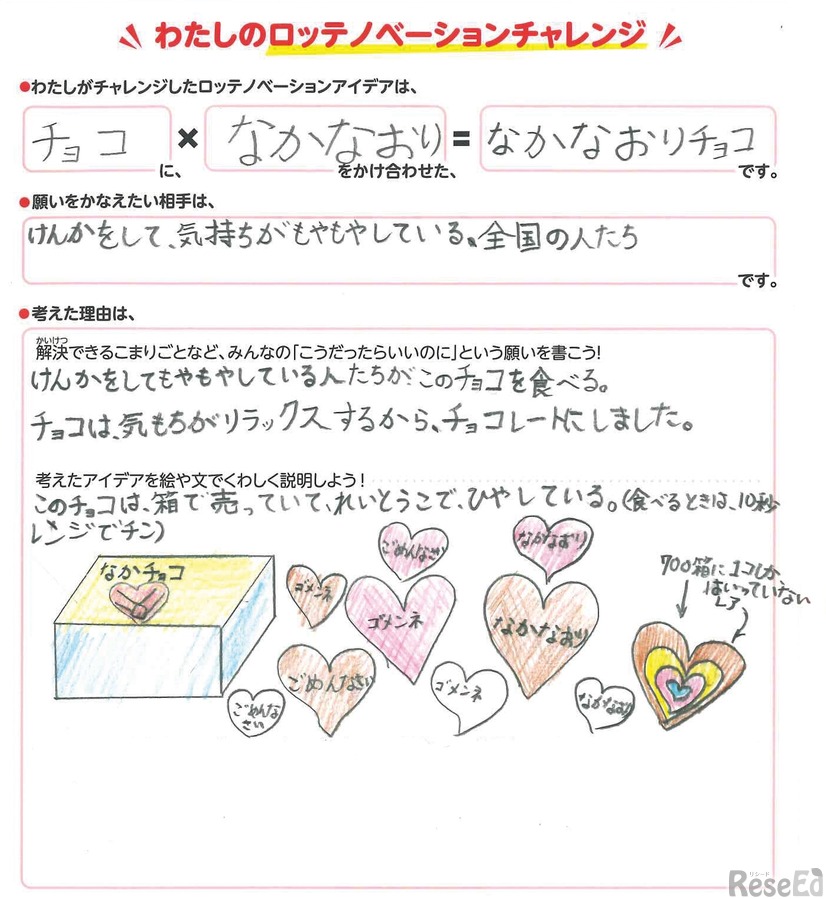 わたしのロッテノベーションチャレンジ
●わたしがチャレンジしたロッテノベーションアイデアは、
チョコ × なかなおり = なかなおりチョコ
に、 をかけ合わせた、 です。
●願いをかなえたい相手は、
けんかをして、気持ちがもやもやしている。全国の人たち
です。
●考えた理由は、
かいけつ
解決できるこまりごとなど、みんなの「こうだったらいいのに」という願いを書こう!
けんかをしてもやもやしている人たちがこのチョコを食べる。
チョコは、気もちがリラックスするから、チョコレートにしました。
考えたアイデアを絵や文でくわしく説明しよう!
このチョコは、箱で売っていて、れいとうこで、ひやしている。(食べるときは、10秒
レンジでチン)
なかチョコ
ゴメンネ
ごめんなさい
ゴメンネ
なかなおり
なかなおり
700箱に1コしか
はいっていない
レア
ごめんなさい
ゴメンネ
ごめんな
さい
なかなおり
リシード
ReseEd